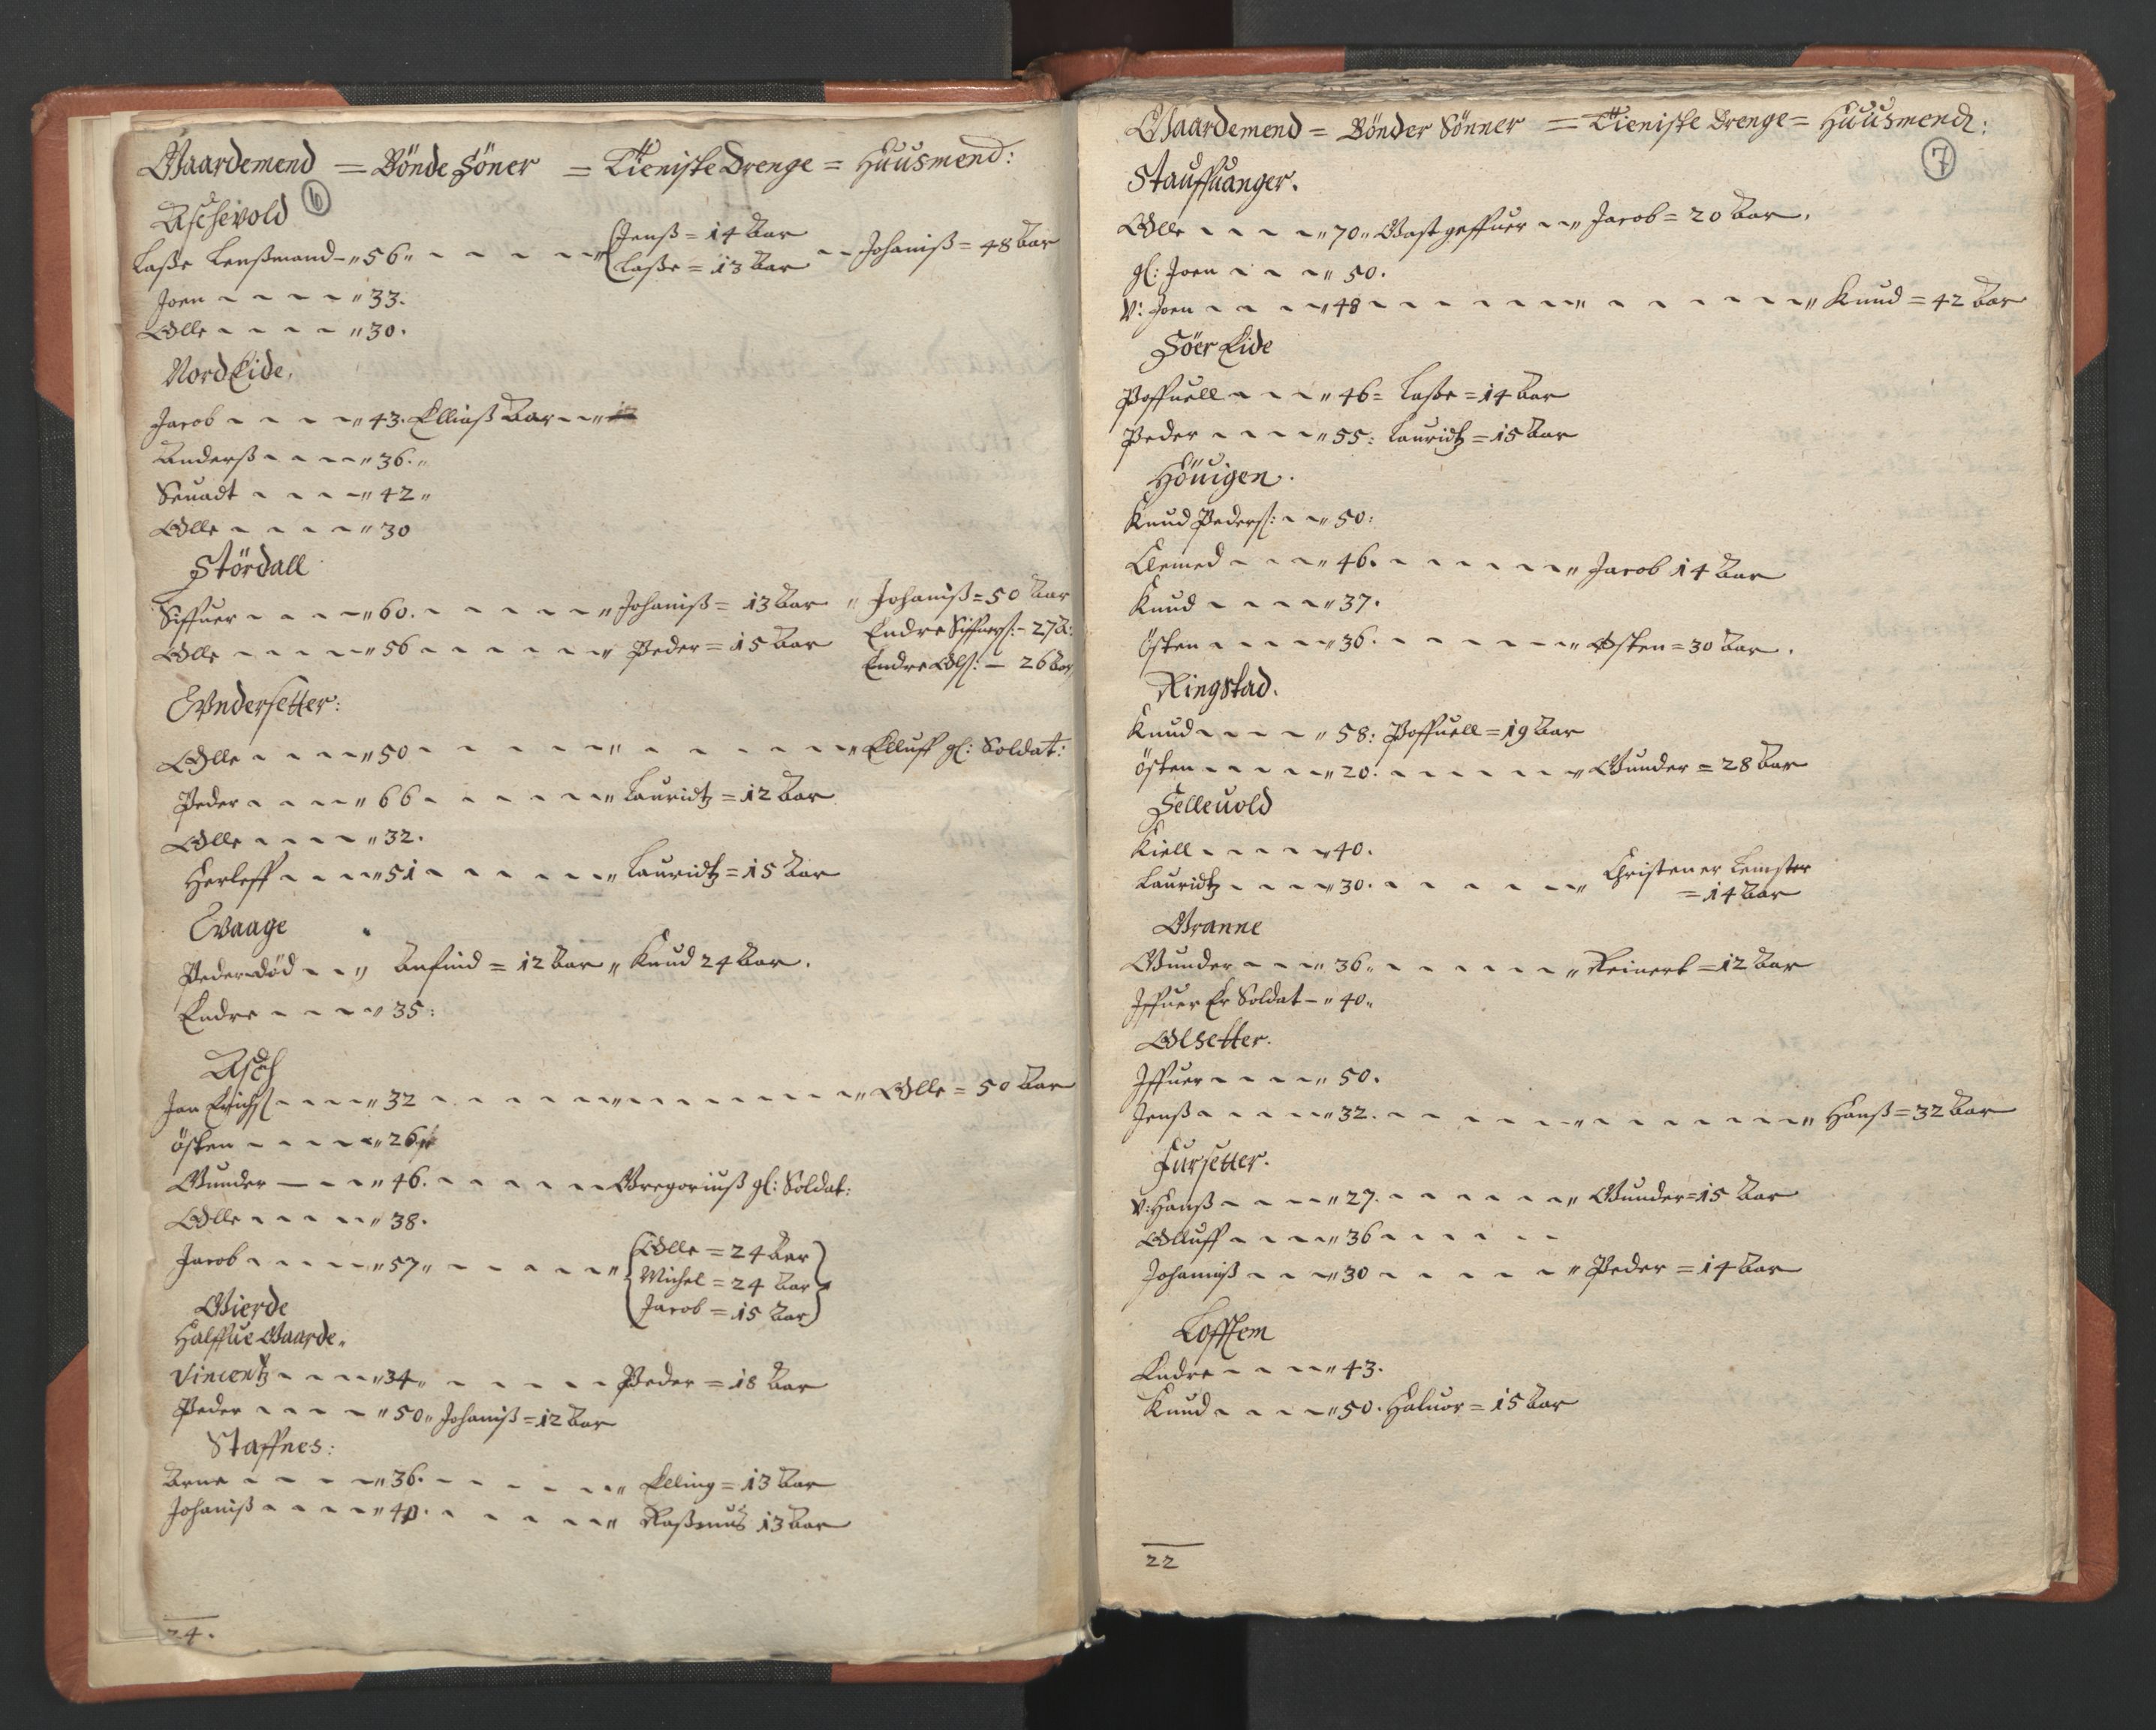 Gaardemend = Bönde Söner = Tieniste Drenge = Huusmend:
6
Aschevold
Lasse Lenßmand - „ 56 „ - - - - - „ Jenß = 14 Aar
Lasse = 13 Aar - - Johaniß = 48 Aar
Joen - - - - - „ 33.
Olle - - - - - „ 30.
Nord Eide.
Jacob - - - - „ 43. Elliaß Aar - - „
Anderß - - - - „ 36. „
Sevadt - - - - „ 42 „
Olle - - - - - „ 30
Stördall
Siffuer - - - - „ 60. - - - - - - „ Johaniß = 13 Aar „ Johaniß = 50 Aar
Endre Siffuerß: - 27 A:
Olle - - - - - „ 56 - - - - - - „ Peder = 15 Aar
Endre Olß: - 26 Aar
Undersetter:
Olle - - - - „ 50 - - - - - - „ - - - - - - „ Elluff gl: Soldat:
Peder - - - - „ 66 - - - - - - „ Lauridtz = 12 Aar
Olle - - - - „ 32.
Herleff - - - - „ 51 - - - - - - „ Lauridtz = 15 Aar
Vaage
Peder død - - „ Anfind = 12 Aar „ Knud 24 Aar.
Endre - - - - „ 35:
Asch
Jon Erichß - - - - „ 32 - - - - - - „ - - - - - - - - „ Olle = 50 Aar
Östen - - - - - „ 26
Gunder - - - - „ 46. - - - - - - Gregoriuß gl: Soldat:
Olle - - - - - „ 38.
Jacob - - - - - „ 57 „ - - - - - - „ Olle = 24 Aar
Michel = 24 Aar
Jacob = 15 Aar
Gierde
Halffue Gaarde.
Vincentz - - - - „ 34 „ - - - - - - Peder = 18 Aar
Peder - - - - „ 50 „ Johaniß = 12 Aar
Staffnes:
Arne - - - - - „ 36. - - - - - - „ Elling = 13 Aar
Johaniß - - - - „ 40. - - - - - - „ Raßmus 13 Aar
24.
Gaardemend = Bönder Sönner = Tieniste Drenge = Huusmend:
7
Stauffuanger.
Olle - - - - „ 70 „ Gastgeffuer - - „ Jacob = 20 Aar.
gl: Joen - - - „ 50.
V: Joen - - - - „ 48 - - - - - - - „ - - - - - - - „ Knud = 42 Aar
Söer Eide
Poffuell - - - - „ 46 = Lasse = 14 Aar
Peder - - - - „ 55: Lauridtz = 15 Aar
Höuigen.
Knud Pederß: - - „ 50:
Clemed - - - - „ 46. - - - - - - - „ Jacob 14 Aar
Knud - - - - „ 37.
Östen - - - - - „ 36. - - - - - - - „ Østen = 30 Aar.
Ringstad.
Knud - - - - - „ 58: Poffuell = 19 Aar
Östen - - - - - „ 20. - - - - - - - „ Gunder = 28 Aar
Selleuold
Kiell - - - - - „ 40.
Lauridtz - - - - „ 30. - - - - - - „ Christen er Lemster
= 14 Aar
Granne
Gunder - - - - „ 36 „ - - - - - - „ Reinert = 12 Aar
Iffuer Er Soldat - „ 40 „
Olsetter.
Iffuer - - - - „ 50.
Jenß - - - - - „ 32. - - - - - - - „ - - - - - - - „ Hanß = 32 Aar
Fursetter.
V: Hanß - - - - „ 27. - - - - - - - „ Gunder = 15 Aar
Olluff - - - - - „ 36 - - - - - -
Johaniß - - - - „ 30 - - - - - - „ Peder = 14 Aar
Endre - - - - „ 43.
Knud - - - - - „ 50. Haluor = 15 Aar
22